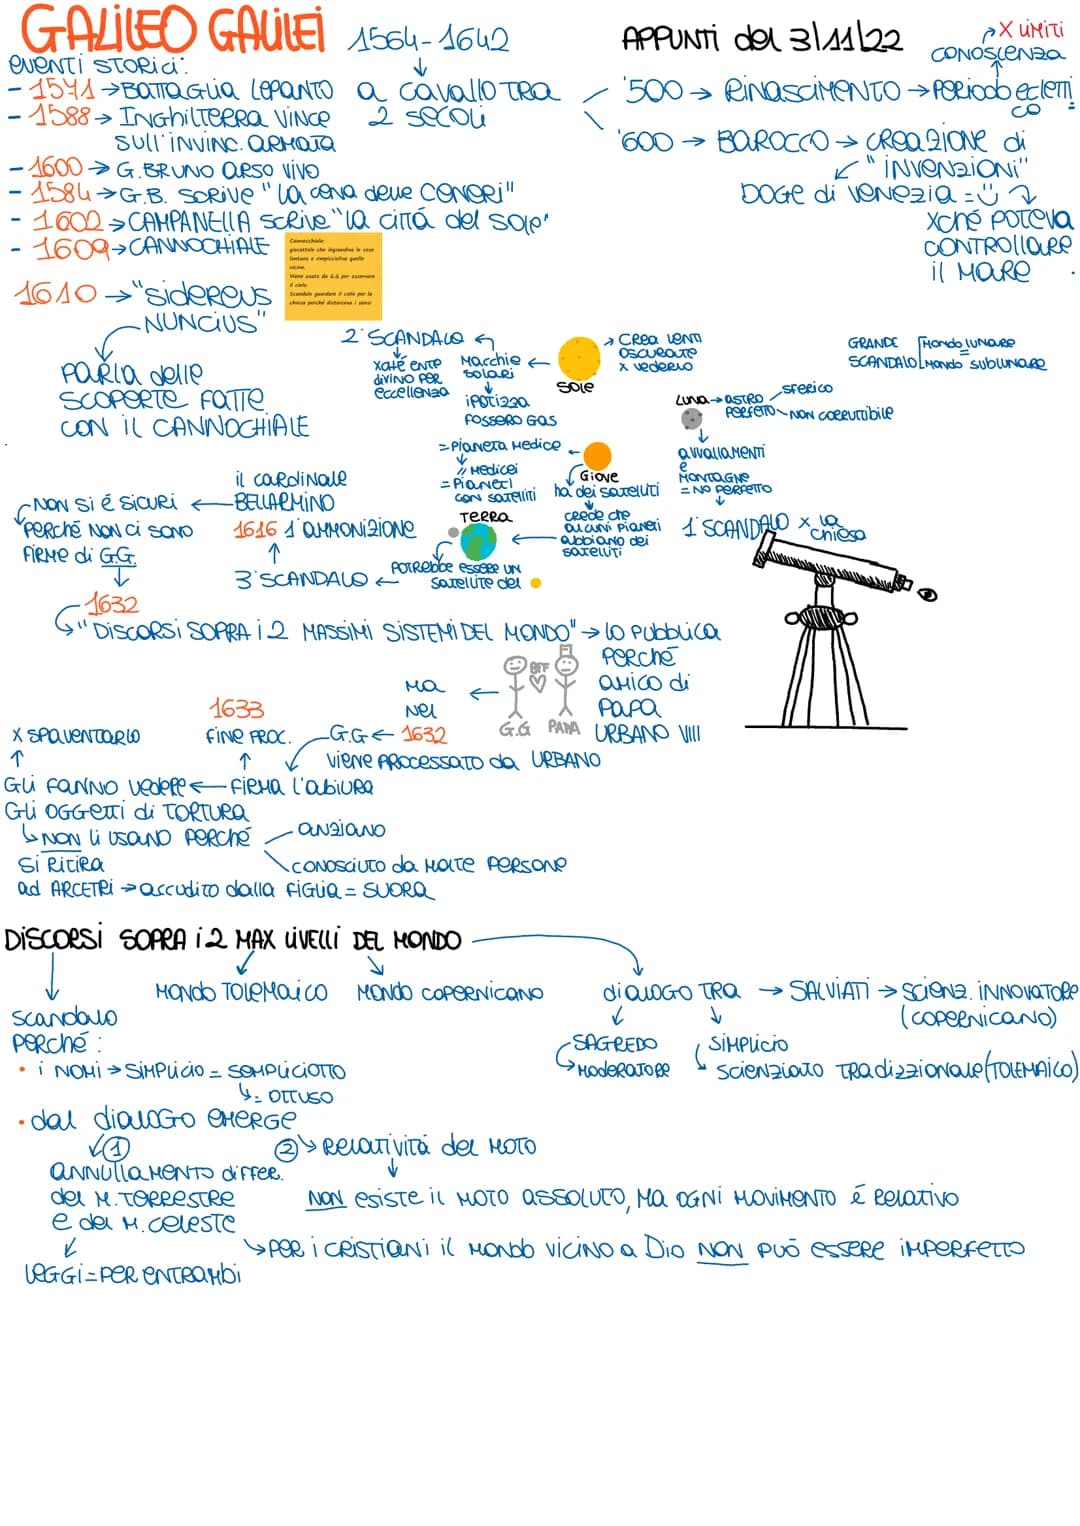 GALILEO GALILEI
1564-1642
APPUNTI del 3/11/22
X LIMITI
CONOSCENZA
eventi storici:
- 1571 → BATTAGLIA LEPANTO
a cavallo tra
2 secoli
'500 → RINASCIMENTO → PERIODO eclettico
- 1588 → INGHILTERRA VINCE
SULL'INVINC. ARMATA
'600 → BAROCCO → CREAZIONE di
"INVENZIONI"
- 1600 → G.BRUNO ARSO VIVO
- 1584 → G.B. SCRIVE "LA cena delle CENERI"
DOGE di VENEZIA =
- 1602 → CAMPANELLA SCRIVE "LA CITTÁ del SOLE"
XCHÉ POTEVA
CONTROLLARE
il MARE
- 1609 → CANNOCHIALE
Cannocchiale:
giocattolo che ingrandiva le cose
lontane e rimpiccioliva quelle
vicine.
Viene usato da G.G per osservare
il cielo.
Scandalo guardare il cielo per la
chiesa perché distorceva i sensi
1610 → "SIDEREUS
NUNCIUS"
PARLA delle
SCOPERTE FATTE
CON IL CANNOCHIALE
2° SCANDALO
XCHÉ ENTE
DIVINO PER
ECCELLENZA
MACCHIE
SOLARI
IPOTIZZA
FOSSERO GAS
SOLE
CREA LENTI
OSCURATE
X VEDERLO
GRANDE
SCANDALO
MONDO LUNARE
=
MONDO SUBLUNARE
LUNA → ASTRO
PERFETTO
SFERICO
NON CORRUTTIBILE
AVVALLAMENTI
e
MONTAGNE
= NO PERFETTO
1° SCANDALO X la
chiesa
= PIANETA MEDICE
// MEDICEI
= PIANETI
CON SATELLITI
GIOVE
ha dei satelliti
CREDE CHE
ALCUNI PIANETI
ABBIANO DEI
SATELLITI
TERRA
POTREBBE ESSERE UN
SATELLITE del
3° SCANDALO
1616 1° AMMONIZIONE
il CARDINALE
BELLARMINO
NON SI É SICURI
PERCHÉ NON CI SONO
FIRME di G.G.
1632
"DISCORSI SOPRA i 2 MASSIMI SISTEMI DEL MONDO" → LO PUBBLICA
PERCHÉ
AMICO di
PAPA
URBANO VIII
BFF
G.G PAPA
MA
NEL
1632
G.G
VIENE PROCESSATO da URBANO
FIRMA L'abiura
1633
FINE PROC.
Gli FANNO VEDERE
Gli OGGETTI di TORTURA
X SPAVENTARLO
NON li USANO PERCHÉ
ANZIANO
CONOSCIUTO da MOLTE PERSONE
SI RITIRA
ad ARCETRI → accudito dalla FIGLIA = SUORA
DISCORSI SOPRA i 2 MAX LIVELLI DEL MONDO
MONDO TOLEMAICO
MONDO COPERNICANO
dialogo TRA
→ SALVIATI → SCIENZ. INNOVATORE
(COPERNICANO)
SAGREDO
MODERATORE
SIMPLICIO
SCIENZIATO TRADIZZIONALE (TOLEMAICO)
SCANDALO
PERCHÉ:
• i NOMI → SIMPLICIO = SEMPLICIOTTO
= OTTUSO
• dal dialogo EMERGE
1
ANNULLAMENTO DIFFER.
del M. TERRESTRE
e del M. CELESTE
LEGGI = PER ENTRAMBI
2 RELATIVITÁ del MOTO
NON ESISTE il MOTO ASSOLUTO, MA OGNI MOVIMENTO É RELATIVO
PER i CRISTIANI il MONDO VICINO a DIO NON PUÓ ESSERE IMPERFETTO